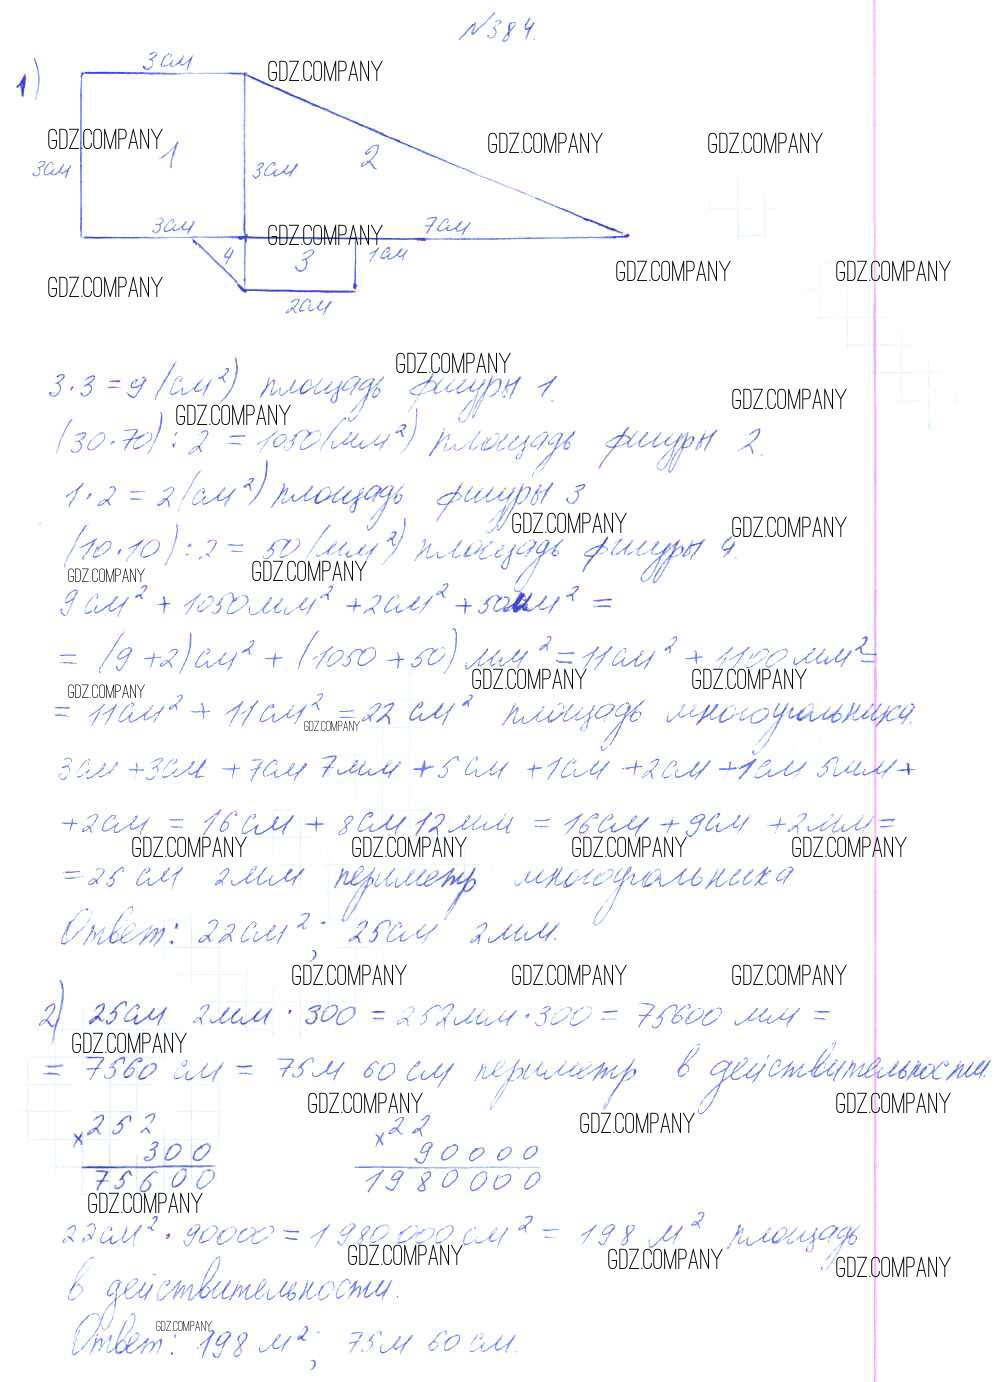 №384.
1)
3см
GDZ.COMPANY
GDZ.COMPANY 1 2 GDZ.COMPANY GDZ.COMPANY
3см 3см
3см GDZ.COMPANY 7см
4 3 1см
GDZ.COMPANY GDZ.COMPANY GDZ.COMPANY
2см
GDZ.COMPANY
3·3=9(см²) площадь фигуры 1.
GDZ.COMPANY GDZ.COMPANY
(30·70):2=1050(мм²) площадь фигуры 2.
1·2=2(см²) площадь фигуры 3
GDZ.COMPANY GDZ.COMPANY
(10·10):2=50(мм²) площадь фигуры 4.
GDZ.COMPANY GDZ.COMPANY
9см²+1050мм²+2см²+50мм²=
=(9+2)см²+(1050+50)мм²=11см²+1100мм²=
GDZ.COMPANY GDZ.COMPANY GDZ.COMPANY
=11см²+11см²=22см² площадь многоугольника.
GDZ.COMPANY
3см+3см+7см 7мм+5см+1см+2см+1см 5мм+
+2см=16см+8см 12мм=16см+9см+2мм=
GDZ.COMPANY GDZ.COMPANY GDZ.COMPANY GDZ.COMPANY
=25см 2мм периметр многоугольника
Ответ: 22см²; 25см 2мм.
GDZ.COMPANY GDZ.COMPANY GDZ.COMPANY
2) 25см 2мм·300=252мм·300=75600мм=
GDZ.COMPANY
=7560см=75м 60см периметр в действительности.
GDZ.COMPANY GDZ.COMPANY GDZ.COMPANY
×252 ×22
300 90000
75600 1980000
GDZ.COMPANY
22см²·90000=1980000см²=198м² площадь
GDZ.COMPANY GDZ.COMPANY GDZ.COMPANY
в действительности.
GDZ.COMPANY
Ответ: 198м²; 75м 60см.